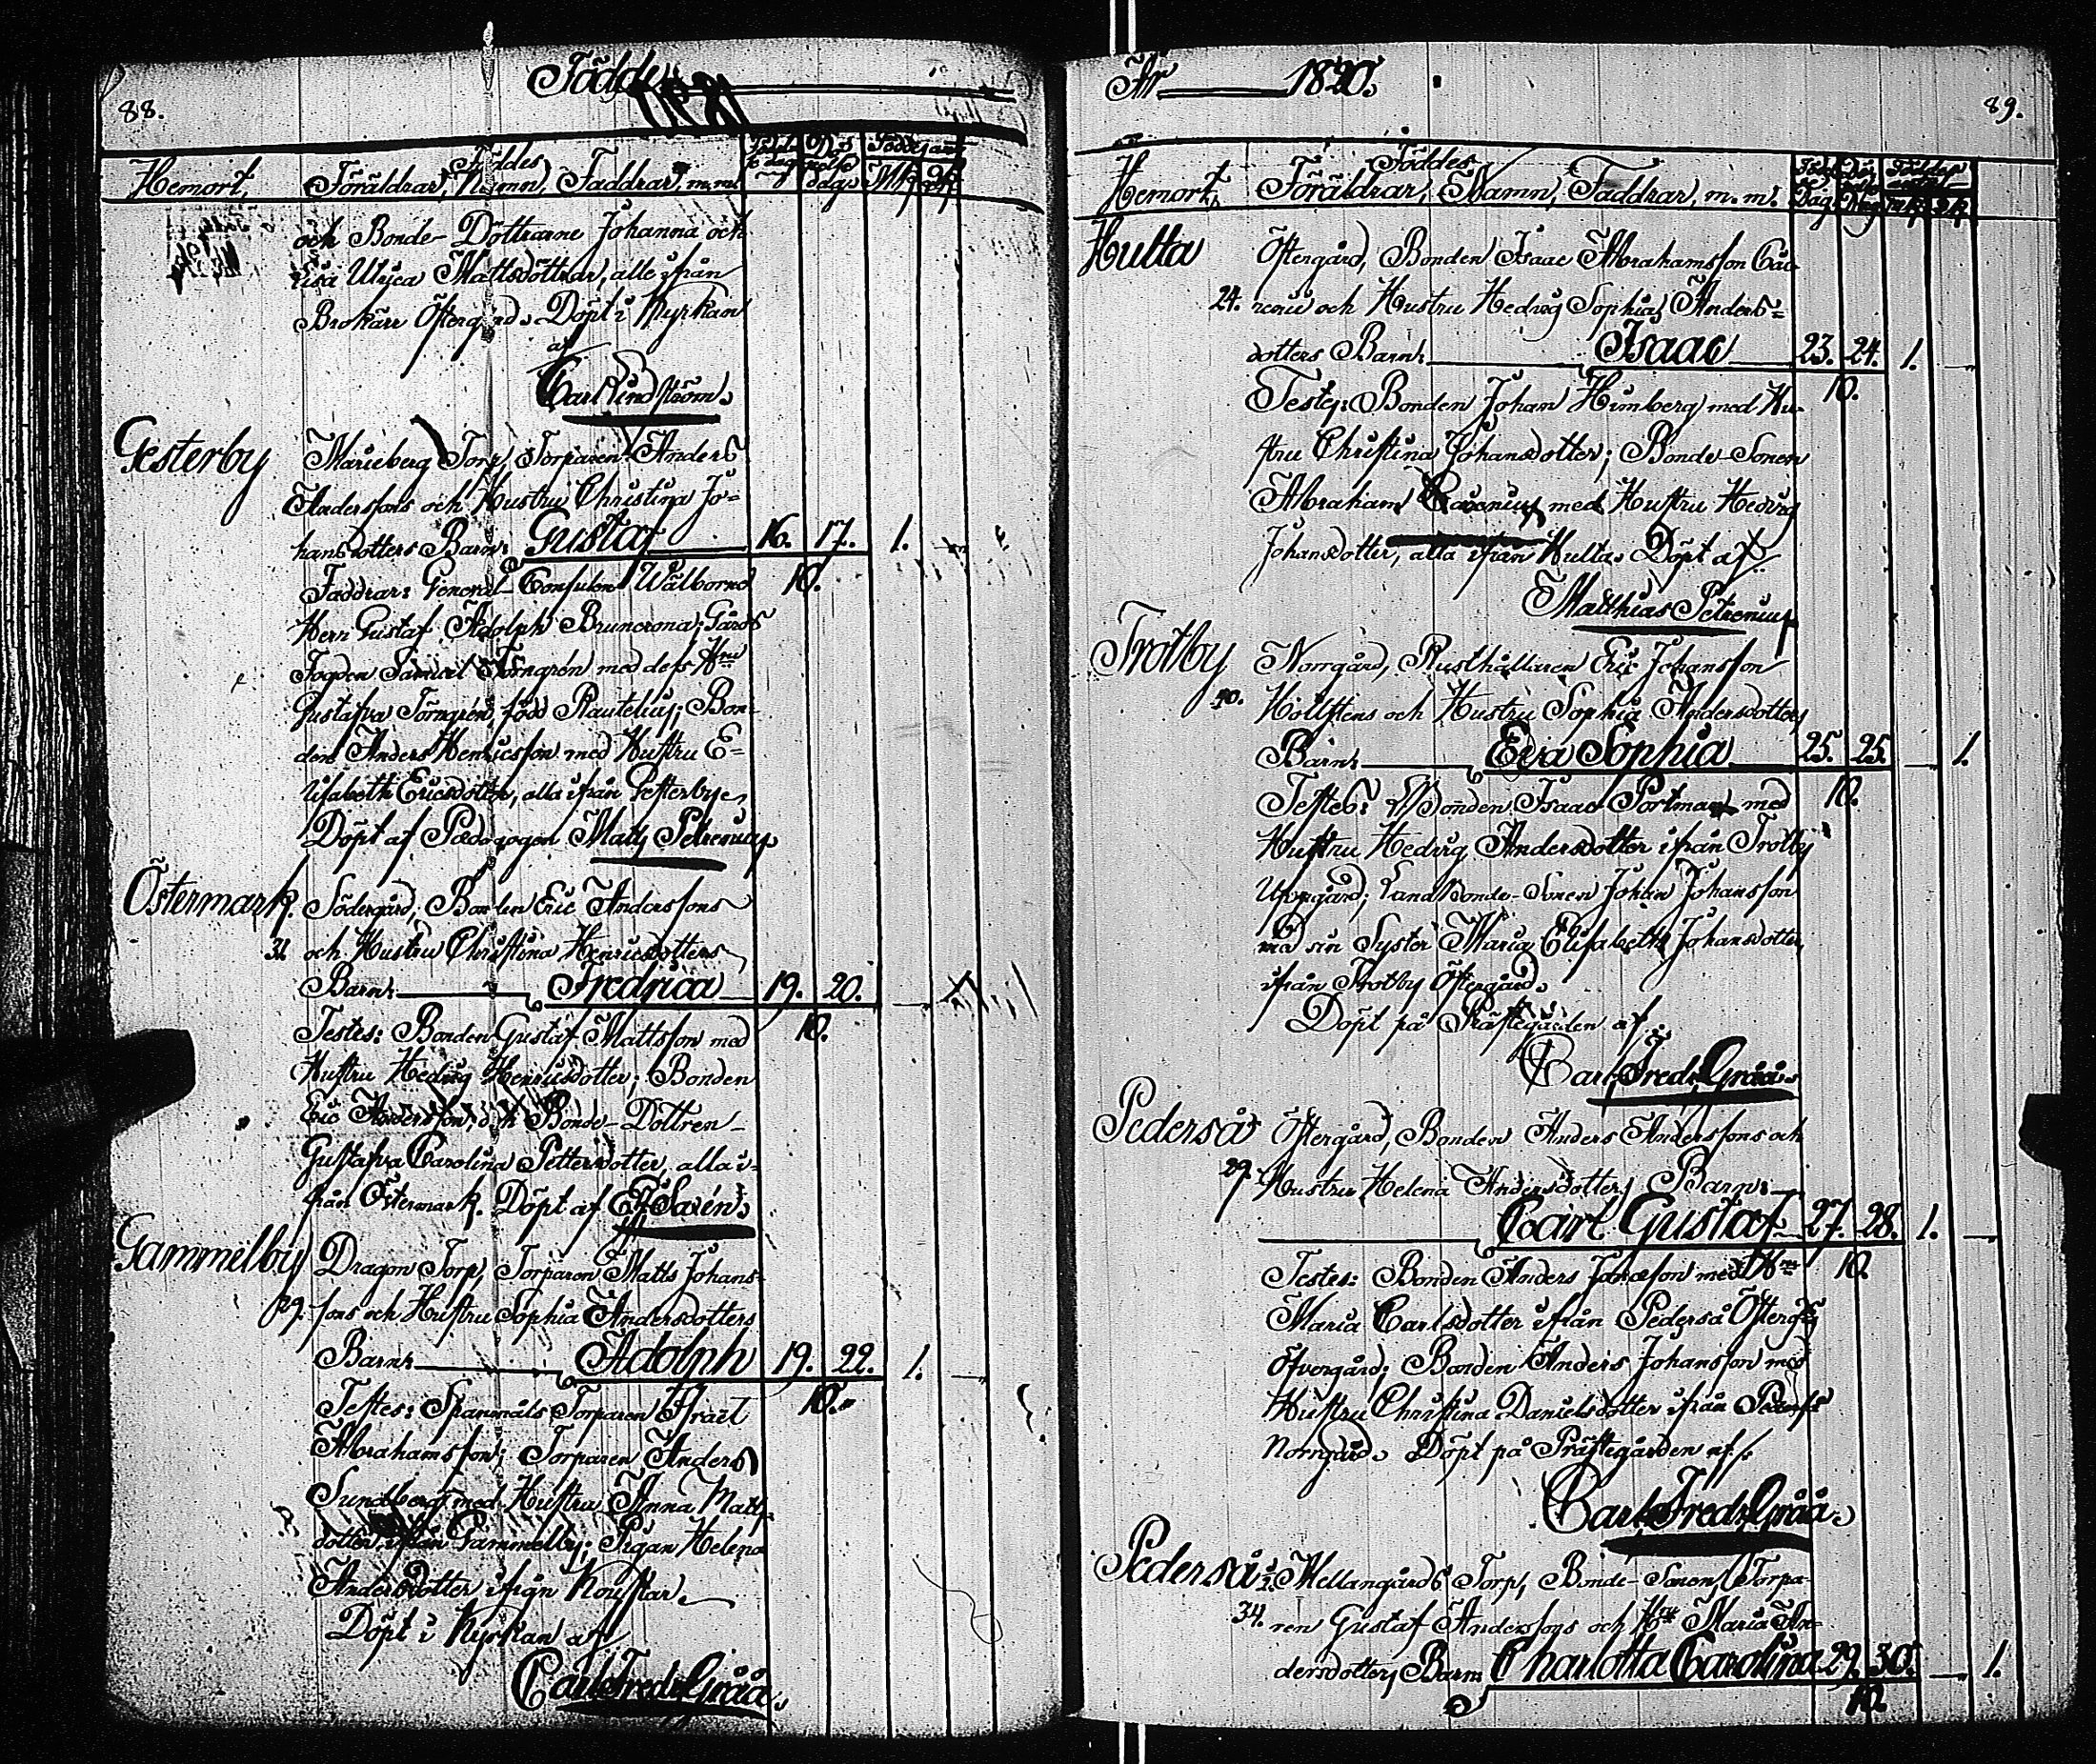 88.
Födde
Hemort,
Föddes
Föräldrar, Namn, Faddrar, m.m.
och Bonde-Döttrarne Johanna och
Lisa Ulrica Mattsdöttrar, alle ifrån
Brokärr Östergård. Döpt i Kyrkan
af
Carl Lindström.
Gesterby
Marieberg Torp, Torparen Anders
Anderssons och Hustru Christina Jo-
hansdotters Barn: Gustaf 16. 17. 1.
10.
Faddrar: General-Consulen Wälborne
Herr Gustaf Adolph Bruncrona; Gårds
Fogden Samuel Törngrén med dess Hru
Gustafva Törngrén, född Rautelius; Bon-
den Anders Henricsson med Hustru E-
lisabeth Ericsdotter, alla ifrån Gesterby.
Döpt af Pædagogen Matts Petrenius
Östermark.
Södergård, Bonden Eric Anderssons
31 och Hustru Christina Henricsdotters
Barn: Fredrica 19. 20.
10.
Testes: Bonden Gustaf Mattsson med
Hustru Hedvig Henricsdotter; Bonden
Eric Andersson, och Bonde-Dottren
Gustafva Carolina Pettersdotter, alla i-
från Östermark. Döpt af Sarén.
Gammelby
Dragon Torp, Torparen Matts Johans-
29. sons och Hustru Sophia Andersdotters
Barn: Adolph 19. 22. 1.
10.
Testes: Spanmåls Torparen Israel
Abrahamsson; Torparen Anders
Sundberg med Hustru Anna Matts-
dotter, ifrån Gammelby; Pigan Helena
Andersdotter ifrån
Döpt i Kyrkan af
Carl Fredr. Gråå.
År 1820.
89.
Hemort,
Föddes
Föräldrar, Namn, Faddrar, m.m.
Hulta
Östergård, Bonden Isaac Abrahamsson Cav-
24. renii och Hustru Hedvig Sophia Anders-
dotters Barn: Isaac 23. 24. 1.
10.
Testes: Bonden Johan Himberg med Hu-
stru Christina Johansdotter; Bonde-Sonen
Abraham Cavenius med Hustru Hedvig
Johansdotter, alla ifrån Hulta. Döpt af
Matthias Petrenius
Trotby
Norrgård, Rusthållaren Eric Johansson
40. Hollstens och Hustru Sophia Andersdotters
Barn: Eva Sophia 25. 25. 1.
10.
Testes: Bonden Isaac Portman med
Hustru Hedvig Andersdotter ifrån Trotby
Uppgård; Landbonde-Sonen Johan Johansson
med sin Syster Maria Elisabeth Johansdotter,
ifrån Trotby Östergård.
Döpt på Prästegården af
Carl Fredr. Gråå.
Pederså
Östergård, Bonden Anders Anderssons och
29. Hustru Helena Andersdotters Barn:
Carl Gustaf 27. 28. 1.
10.
Testes: Bonden Anders Jonasson med Hru
Maria Carlsdotter ifrån Pederså Östergd
Öfvergård; Bonden Anders Johansson med
Hustru Christina Danielsdotter ifrån
Norrgård. Döpt på Prästegården af
Carl Fredr. Gråå.
Pederså
Mellangårds Torp, Bonde-Sonen, Torpa-
34. ren Gustaf Anderssons och Hru Maria An-
dersdotters Barn: Charlotta Carolina 29. 30. 1.
10.